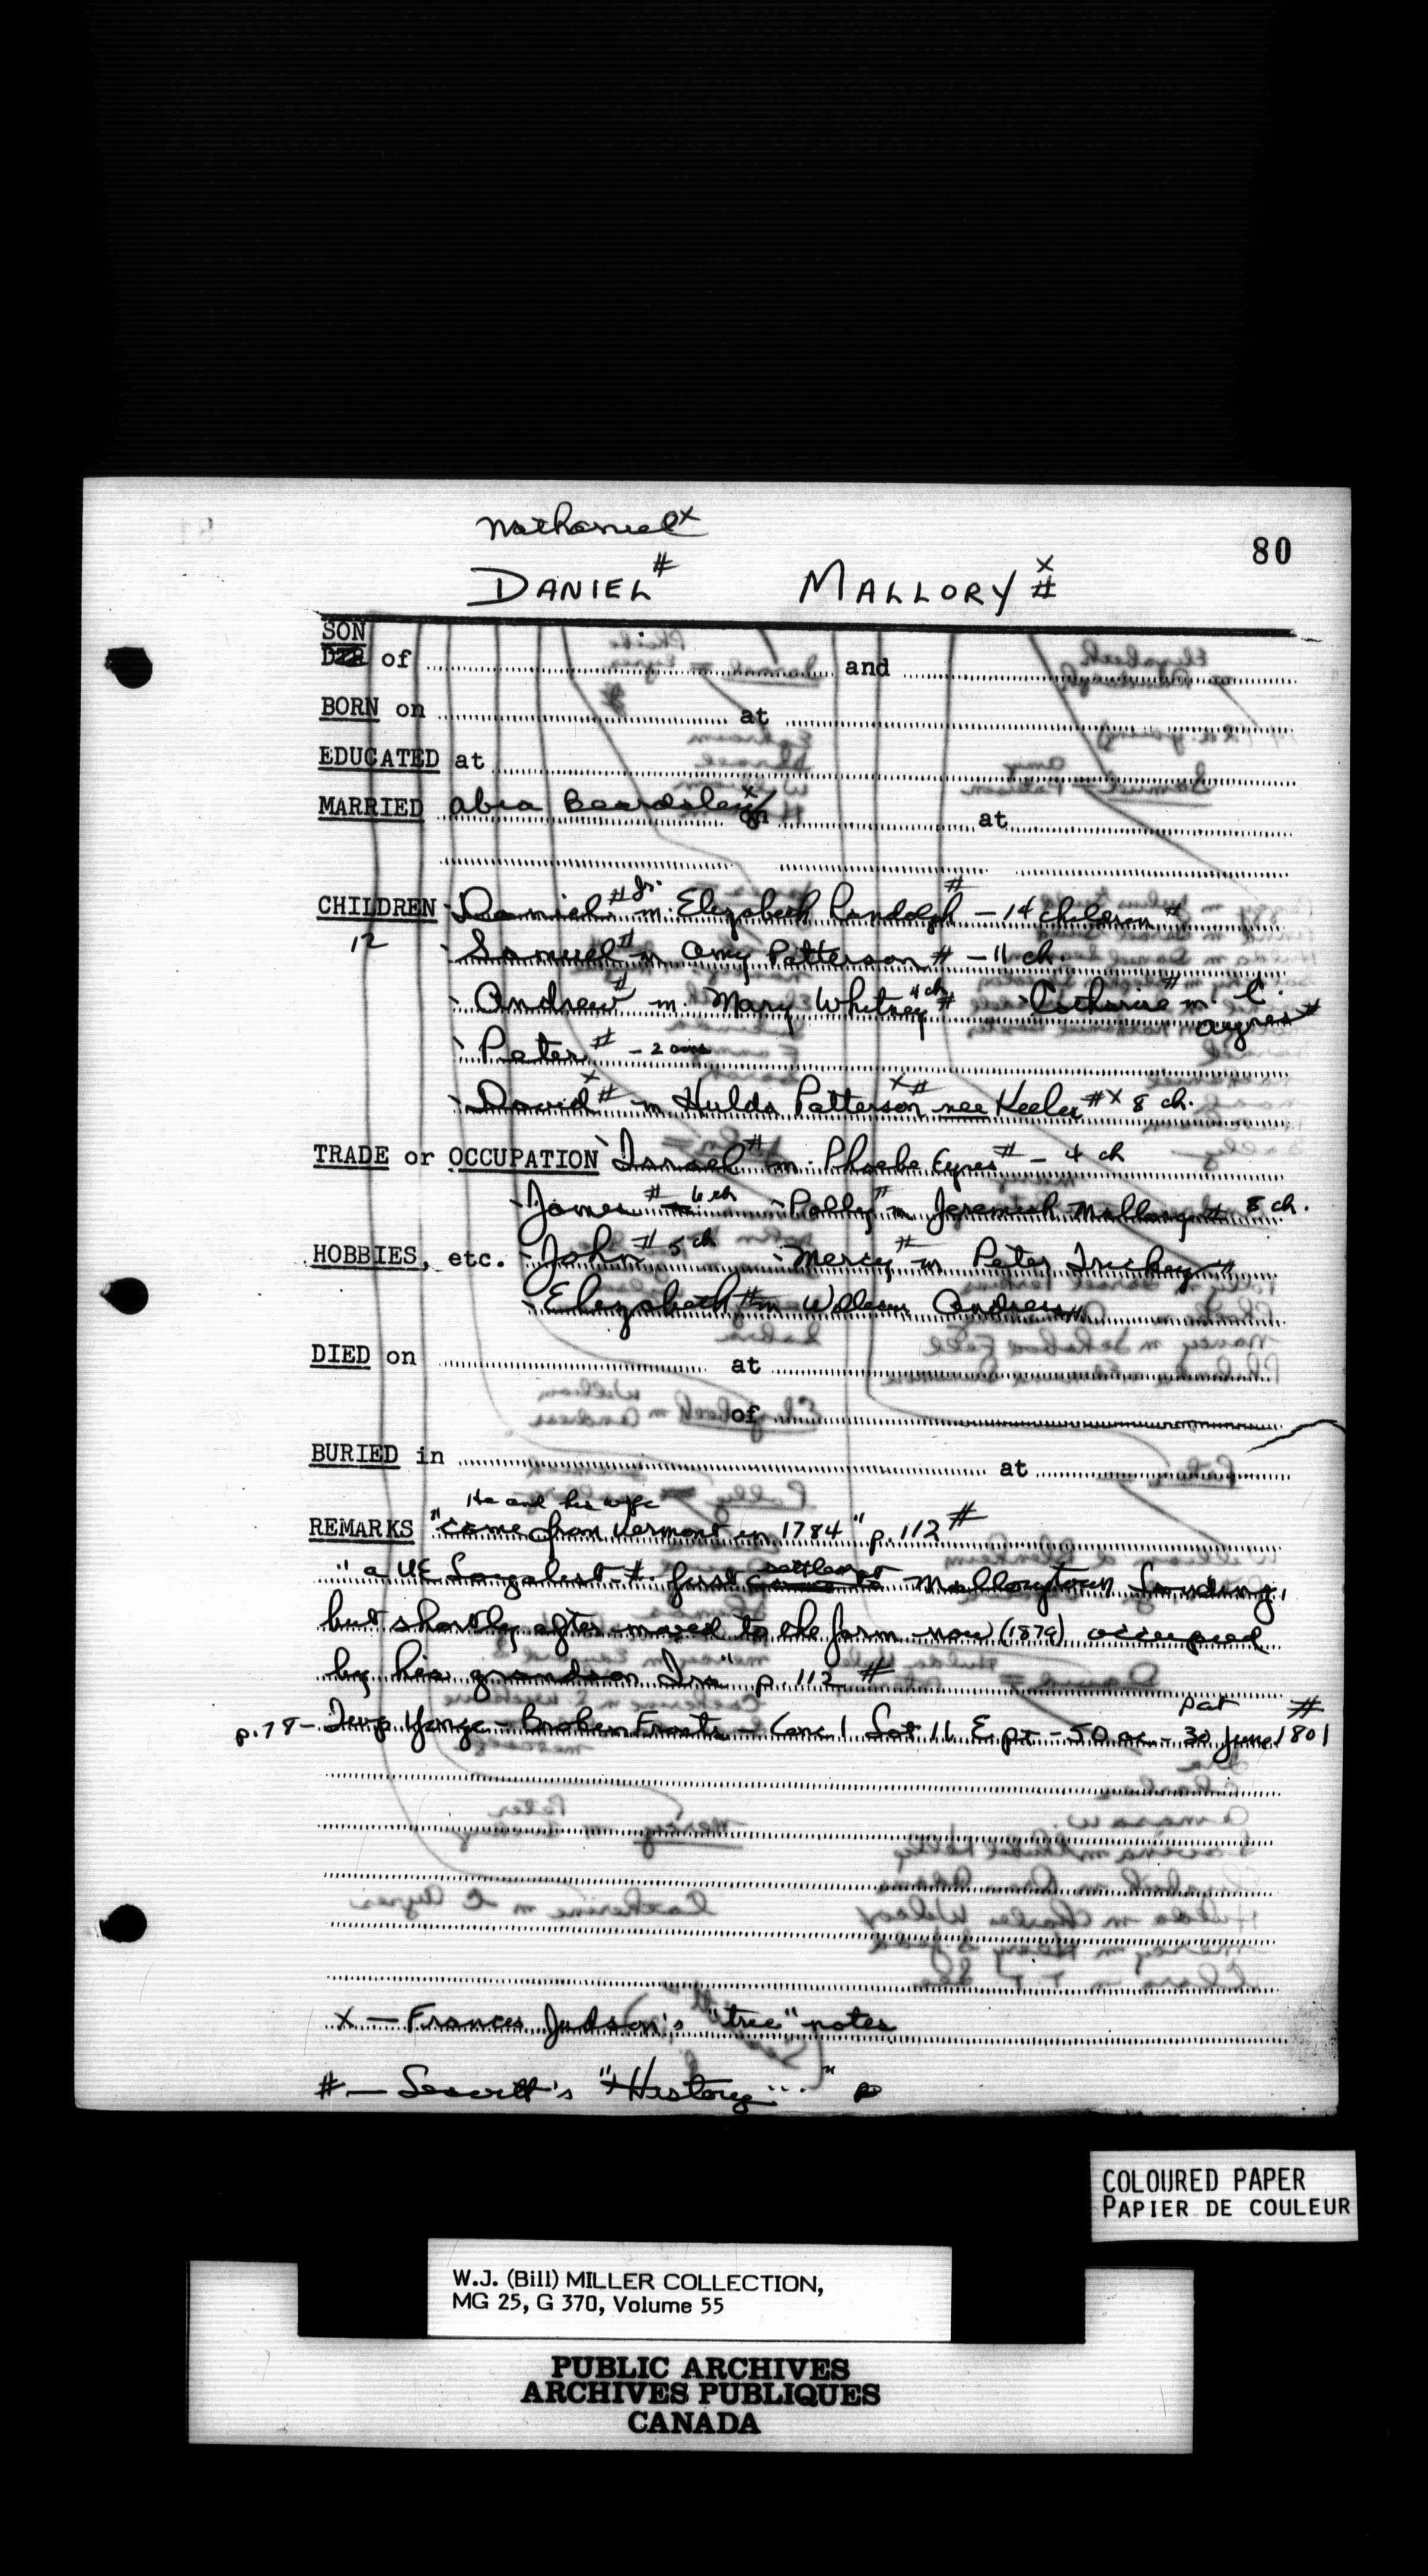 Nathaniel x
80
DANIEL # MALLORY x #
SON
DTR of and
BORN on at
EDUCATED at
MARRIED Abia Beardsley x on at
CHILDREN - Daniel # Jr. m. Elizabeth Randolph # - 14 children #
12 - Samuel # m Amy Patterson # - 11 ch.
- Andrew # m. Mary Whitney # 4 ch - Catherine # m. C. Ayres #
- Peter # - 2 sons
- David x # m Hulda Patterson x # nee Keeler # x 8 ch.
TRADE or OCCUPATION - Israel # m. Phoebe Eyres # - 4 ch
- James # - 6 ch - Polly # m Jeremiah Mallory # 8 ch.
HOBBIES, etc. - John # 5 ch - Mercy # m Peter Trickey #
- Elizabeth # m William Andress #
DIED on at
of
BURIED in at
He and his wife
REMARKS "came from Vermont in 1784" p. 112 #
"a UE Loyalist # first settled at Mallorytown Landing,
but shortly after moved to the farm now (1879) occupied
by his grandson Ira" p. 112 #
p. 78 - Twp Yonge - Broken Fronts - Conc 1 Lot 11 E pt - 50 ac - Pat 30 June 1801 #
x — Frances Judson's "tree" notes
# — Leavitt's "History ..." p
COLOURED PAPER
PAPIER DE COULEUR
W.J. (Bill) MILLER COLLECTION,
MG 25, G 370, Volume 55
PUBLIC ARCHIVES
ARCHIVES PUBLIQUES
CANADA